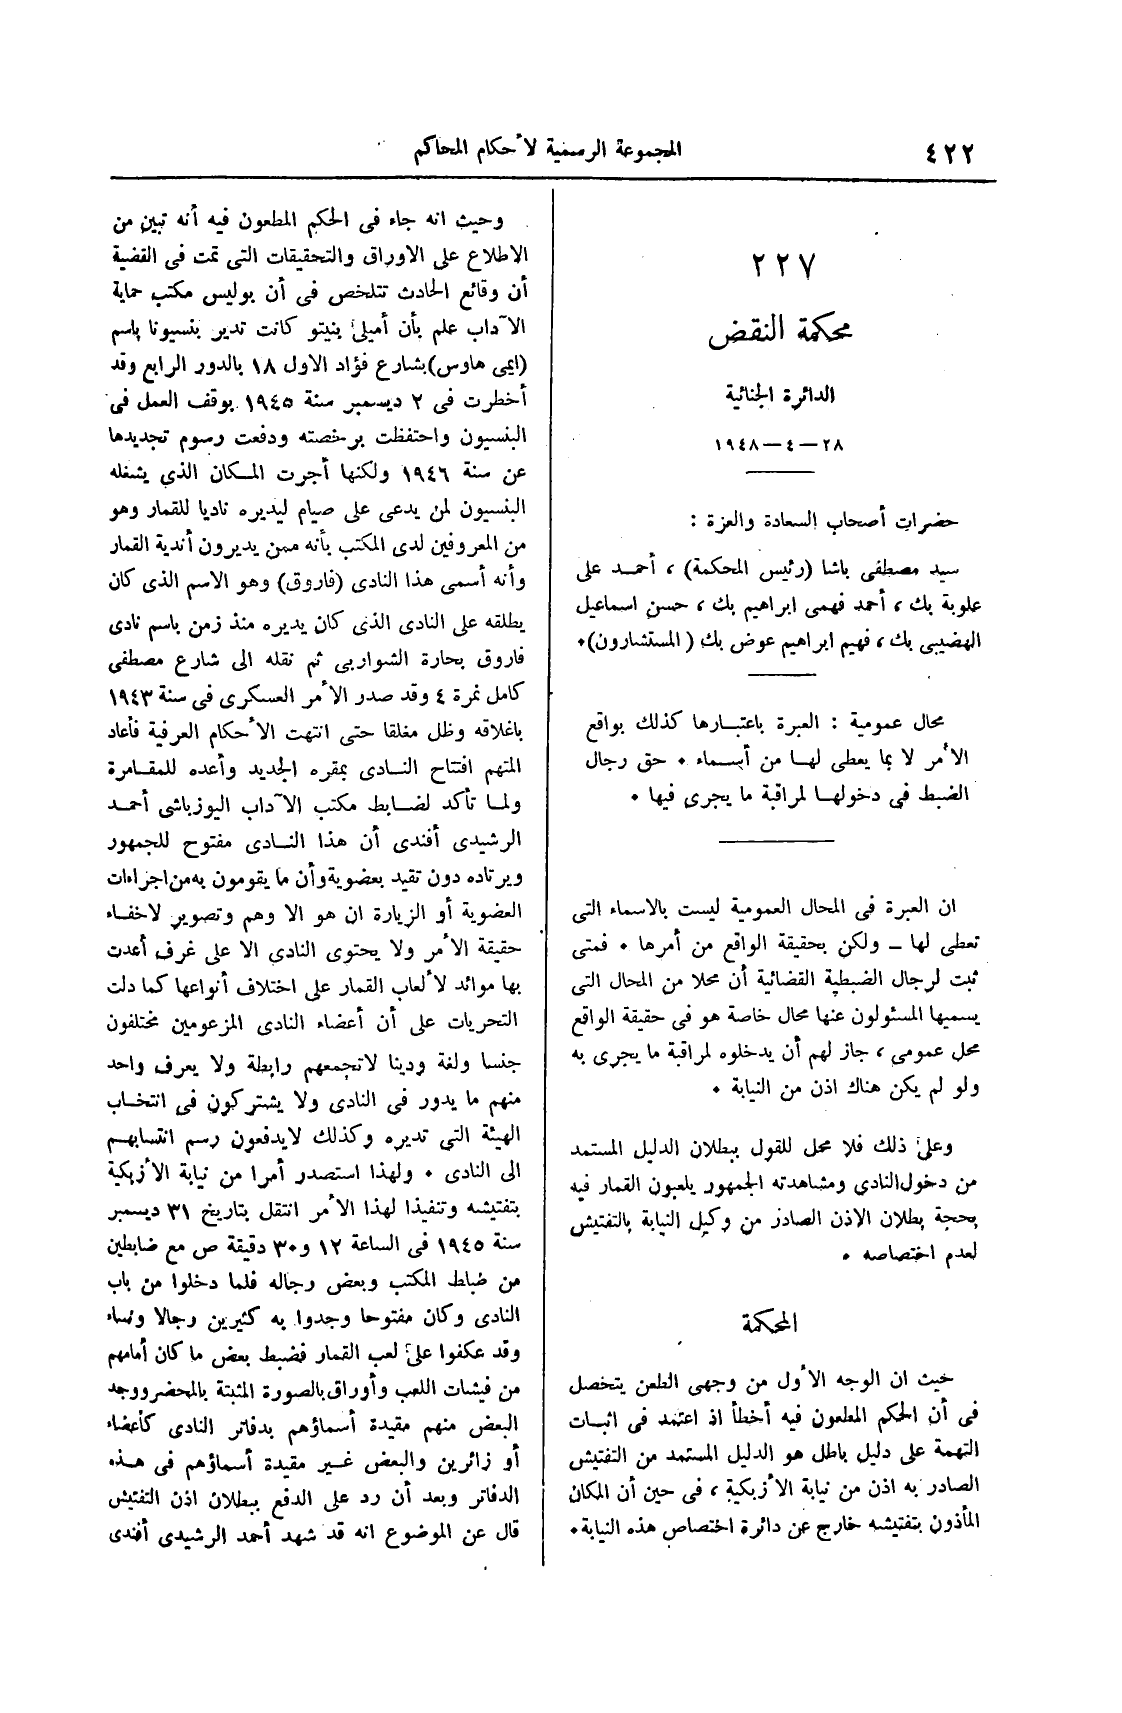 ٤٢٢
المجموعة الرسمية لأحكام المحاكم
٢٢٧
محكمة النقض
الدائرة الجنائية
٢٨ — ٤ — ١٩٤٨
حضرات أصحاب السعادة والعزة :
سيد مصطفى باشا (رئيس المحكمة) ، أحمد على
علوبة بك ، أحمد فهمى ابراهيم بك ، حسن اسماعيل
الهضيبى بك ، فهيم ابراهيم عوض بك (المستشارون)٠
محال عمومية : العبرة باعتبارها كذلك بواقع
الأمر لا بما يعطى لها من أسماء ٠ حق رجال
الضبط فى دخولها لمراقبة ما يجرى فيها ٠
ان العبرة فى المحال العمومية ليست بالاسماء التى
تعطى لها — ولكن بحقيقة الواقع من أمرها ٠ فمتى
ثبت لرجال الضبطية القضائية أن محلا من المحال التى
يسميها المسئولون عنها محال خاصة هو فى حقيقة الواقع
محل عمومى ، جاز لهم أن يدخلوه لمراقبة ما يجرى به
ولو لم يكن هناك اذن من النيابة ٠
وعلى ذلك فلا محل للقول ببطلان الدليل المستمد
من دخول النادى ومشاهدته الجمهور يلعبون القمار فيه
بحجة بطلان الاذن الصادر من وكيل النيابة بالتفتيش
لعدم اختصاصه ٠
المحكمة
حيث ان الوجه الأول من وجهى الطعن يتحصل
فى أن الحكم المطعون فيه أخطأ اذ اعتمد فى اثبات
التهمة على دليل باطل هو الدليل المستمد من التفتيش
الصادر به اذن من نيابة الأزبكية ، فى حين أن المكان
المأذون بتفتيشه خارج عن دائرة اختصاص هذه النيابة٠
وحيث انه جاء فى الحكم المطعون فيه أنه تبين من
الاطلاع على الاوراق والتحقيقات التى تمت فى القضية
أن وقائع الحادث تتلخص فى أن بوليس مكتب حماية
الآداب علم بأن أميلى بنيتو كانت تدير بنسيونا باسم
(ايمى هاوس) بشارع فؤاد الاول ١٨ بالدور الرابع وقد
أخطرت فى ٢ ديسمبر سنة ١٩٤٥ بوقف العمل فى
البنسيون واحتفظت برخصته ودفعت رسوم تجديدها
عن سنة ١٩٤٦ ولكنها أجرت المكان الذى يشغله
البنسيون لمن يدعى على صيام ليديره ناديا للقمار وهو
من المعروفين لدى المكتب بأنه ممن يديرون أندية القمار
وأنه أسمى هذا النادى (فاروق) وهو الاسم الذى كان
يطلقه على النادى الذى كان يديره منذ زمن باسم نادى
فاروق بحارة الشواربى ثم نقله الى شارع مصطفى
كامل نمرة ٤ وقد صدر الأمر العسكرى فى سنة ١٩٤٣
باغلاقه وظل مغلقا حتى انتهت الأحكام العرفية فأعاد
المتهم افتتاح النادى بمقره الجديد وأعده للمقامرة
ولما تأكد لضابط مكتب الآداب اليوزباشى أحمد
الرشيدى أفندى أن هذا النادى مفتوح للجمهور
ويرتاده دون تقيد بعضوية وأن ما يقومون به من اجراءات
العضوية أو الزيارة ان هو الا وهم وتصوير لاخفاء
حقيقة الأمر ولا يحتوى النادى الا على غرف أعدت
بها موائد لألعاب القمار على اختلاف أنواعها كما دلت
التحريات على أن أعضاء النادى المزعومين مختلفون
جنسا ولغة ودينا لا تجمعهم رابطة ولا يعرف واحد
منهم ما يدور فى النادى ولا يشتركون فى انتخاب
الهيئة التى تديره وكذلك لا يدفعون رسم انتسابهم
الى النادى ٠ ولهذا استصدر أمرا من نيابة الأزبكية
بتفتيشه وتنفيذا لهذا الأمر انتقل بتاريخ ٣١ ديسمبر
سنة ١٩٤٥ فى الساعة ١٢ و٣٠ دقيقة ص مع ضابطين
من ضباط المكتب وبعض رجاله فلما دخلوا من باب
النادى وكان مفتوحا وجدوا به كثيرين رجالا ونساء
وقد عكفوا على لعب القمار فضبط بعض ما كان أمامهم
من فيشات اللعب وأوراق بالصورة المثبتة بالمحضر ووجد
البعض منهم مقيدة أسماؤهم بدفاتر النادى كأعضاء
أو زائرين والبعض غير مقيدة أسماؤهم فى هذه
الدفاتر وبعد أن رد على الدفع ببطلان اذن التفتيش
قال عن الموضوع انه قد شهد أحمد الرشيدى أفندى